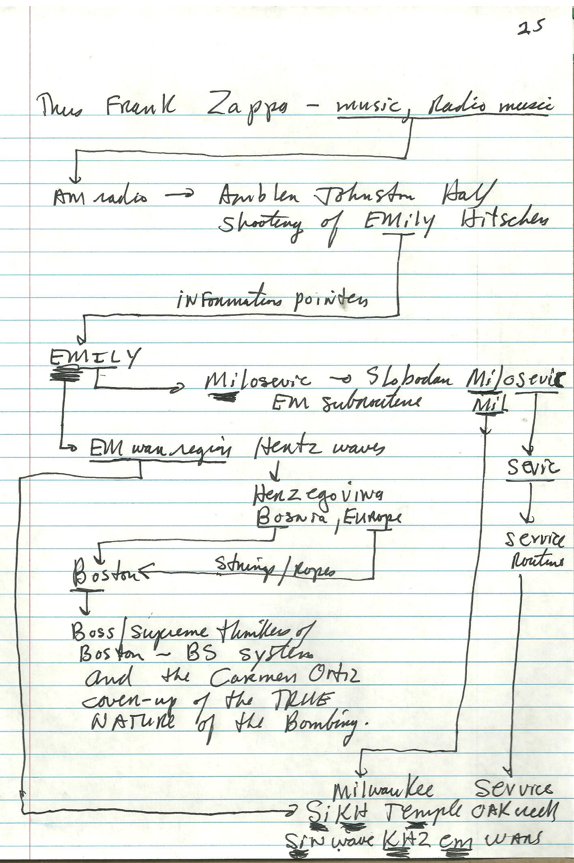 25
Thus Frank Zappa - music, Radio music
AM radio → Ambler Johnston Hall
Shooting of EMily Hitscher
information pointers
EMILY
Milosevic → Slobodan Milosevic
EM subroutine Mil
EM wave region Hertz waves
Sevic
Herzegovina
Bosnia, Europe
service
Routine
Boston ← Strings/Ropes
Boss/supreme thinkers of
Boston ~ BS system
and the Carmen Ortiz
cover-up of the TRUE
NATURE of the Bombing.
Milwaukee Service
SiKH Temple OAK creek
SiN wave KHZ em wave